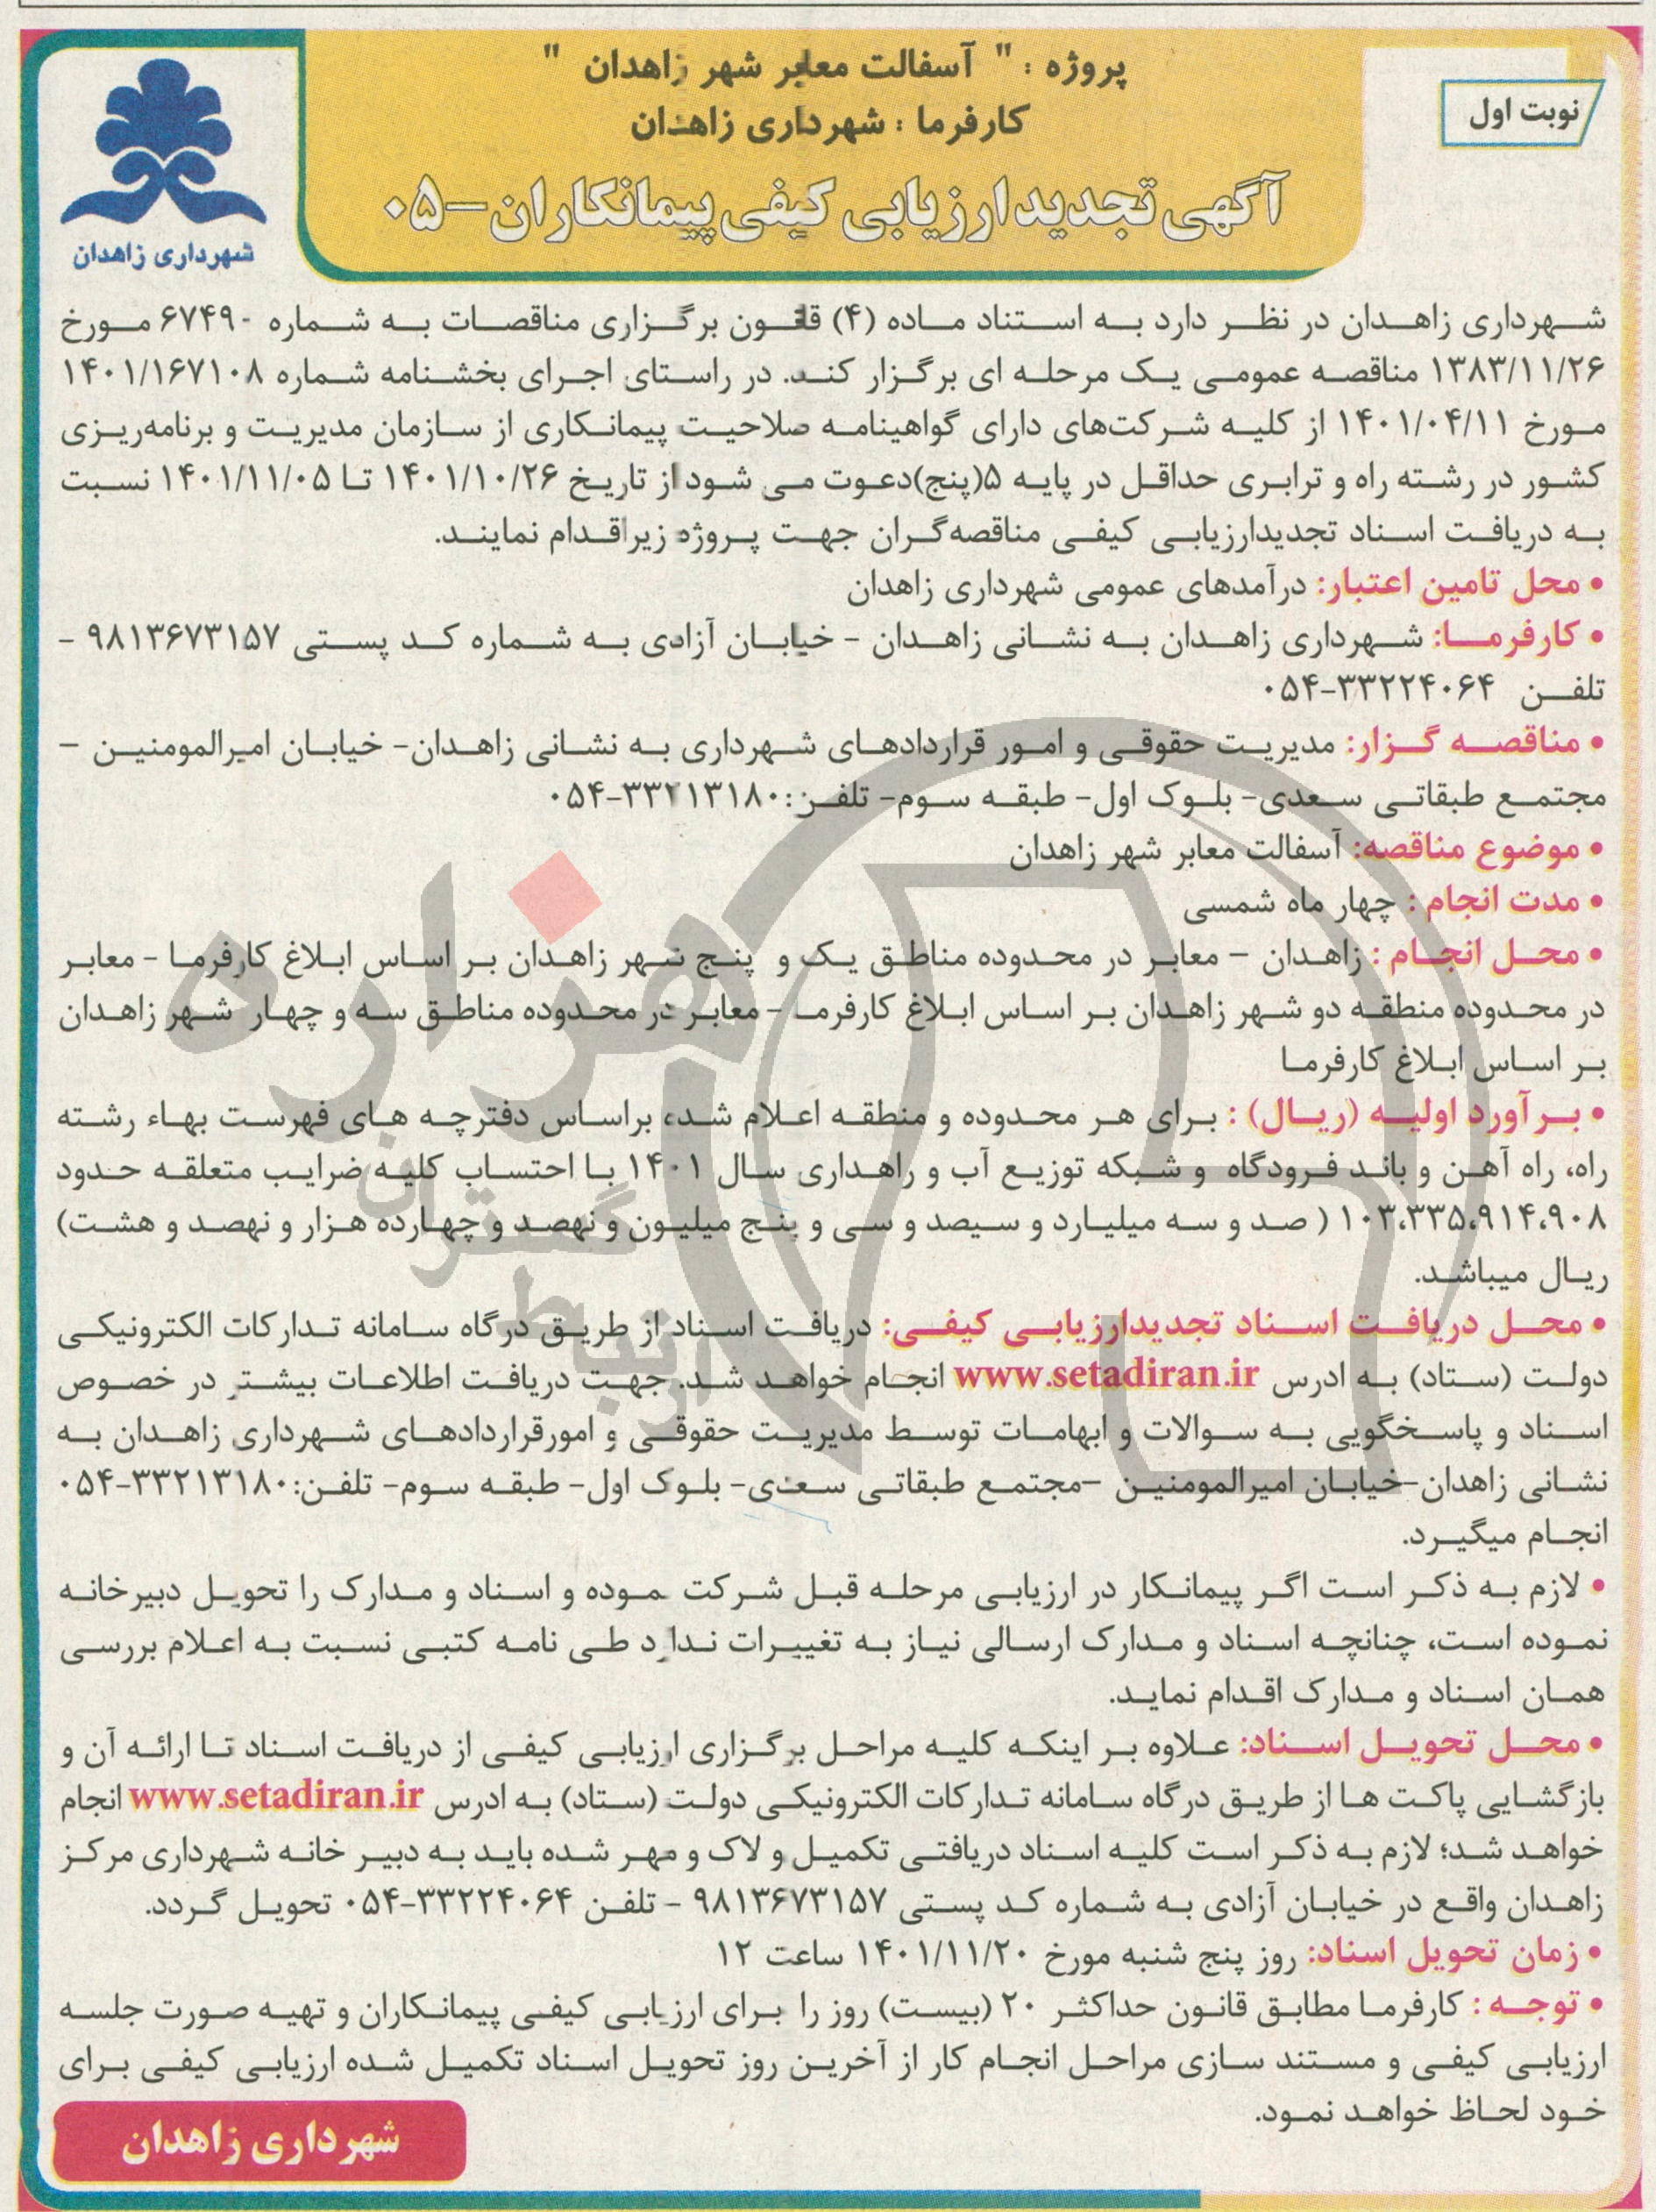 نوبت اول
پروژه : " آسفالت معابر شهر زاهدان "
کارفرما : شهرداری زاهدان
آگهی تجدید ارزیابی کیفی پیمانکاران-۰۵
شهرداری زاهدان
شهرداری زاهدان در نظر دارد به استناد ماده (۴) قانون برگزاری مناقصات به شماره ۶۷۴۹۰ مورخ
۱۳۸۳/۱۱/۲۶ مناقصه عمومی یک مرحله ای برگزار کند. در راستای اجرای بخشنامه شماره ۱۴۰۱/۱۶۷۱۰۸
مورخ ۱۴۰۱/۰۴/۱۱ از کلیه شرکت‌های دارای گواهینامه صلاحیت پیمانکاری از سازمان مدیریت و برنامه‌ریزی
کشور در رشته راه و ترابری حداقل در پایه ۵(پنج)دعوت می شود از تاریخ ۱۴۰۱/۱۰/۲۶ تا ۱۴۰۱/۱۱/۰۵ نسبت
به دریافت اسناد تجدیدارزیابی کیفی مناقصه‌گران جهت پروژه زیراقدام نمایند.
• محل تامین اعتبار: درآمدهای عمومی شهرداری زاهدان
• کارفرما: شهرداری زاهدان به نشانی زاهدان - خیابان آزادی به شماره کد پستی ۹۸۱۳۶۷۳۱۵۷ -
تلفن ۳۳۲۲۴۰۶۴-۰۵۴
• مناقصه گزار: مدیریت حقوقی و امور قراردادهای شهرداری به نشانی زاهدان- خیابان امیرالمومنین -
مجتمع طبقاتی سعدی- بلوک اول- طبقه سوم- تلفن:۳۳۲۱۳۱۸۰-۰۵۴
• موضوع مناقصه: آسفالت معابر شهر زاهدان
• مدت انجام : چهار ماه شمسی
• محل انجام : زاهدان - معابر در محدوده مناطق یک و پنج شهر زاهدان بر اساس ابلاغ کارفرما - معابر
در محدوده منطقه دو شهر زاهدان بر اساس ابلاغ کارفرما - معابر در محدوده مناطق سه و چهار شهر زاهدان
بر اساس ابلاغ کارفرما
• برآورد اولیه (ریال) : برای هر محدوده و منطقه اعلام شده براساس دفترچه های فهرست بهاء رشته
راه، راه آهن و باند فرودگاه و شبکه توزیع آب و راهداری سال ۱۴۰۱ با احتساب کلیه ضرایب متعلقه حدود
۱۰۳،۳۳۵،۹۱۴،۹۰۸ ( صد و سه میلیارد و سیصد و سی و پنج میلیون و نهصد و چهارده هزار و نهصد و هشت)
ریال میباشد.
• محل دریافت اسناد تجدیدارزیابی کیفی: دریافت اسناد از طریق درگاه سامانه تدارکات الکترونیکی
دولت (ستاد) به ادرس www.setadiran.ir انجام خواهد شد. جهت دریافت اطلاعات بیشتر در خصوص
اسناد و پاسخگویی به سوالات و ابهامات توسط مدیریت حقوقی و امورقراردادهای شهرداری زاهدان به
نشانی زاهدان-خیابان امیرالمومنین -مجتمع طبقاتی سعدی- بلوک اول- طبقه سوم- تلفن:۳۳۲۱۳۱۸۰-۰۵۴
انجام میگیرد.
• لازم به ذکر است اگر پیمانکار در ارزیابی مرحله قبل شرکت نموده و اسناد و مدارک را تحویل دبیرخانه
نموده است، چنانچه اسناد و مدارک ارسالی نیاز به تغییرات ندارد طی نامه کتبی نسبت به اعلام بررسی
همان اسناد و مدارک اقدام نماید.
• محل تحویل اسناد: علاوه بر اینکه کلیه مراحل برگزاری ارزیابی کیفی از دریافت اسناد تا ارائه آن و
بازگشایی پاکت ها از طریق درگاه سامانه تدارکات الکترونیکی دولت (ستاد) به ادرس www.setadiran.ir انجام
خواهد شد؛ لازم به ذکر است کلیه اسناد دریافتی تکمیل و لاک و مهر شده باید به دبیر خانه شهرداری مرکز
زاهدان واقع در خیابان آزادی به شماره کد پستی ۹۸۱۳۶۷۳۱۵۷ - تلفن ۳۳۲۲۴۰۶۴-۰۵۴ تحویل گردد.
• زمان تحویل اسناد: روز پنج شنبه مورخ ۱۴۰۱/۱۱/۲۰ ساعت ۱۲
• توجه : کارفرما مطابق قانون حداکثر ۲۰ (بیست) روز را برای ارزیابی کیفی پیمانکاران و تهیه صورت جلسه
ارزیابی کیفی و مستند سازی مراحل انجام کار از آخرین روز تحویل اسناد تکمیل شده ارزیابی کیفی برای
خود لحاظ خواهد نمود.
شهرداری زاهدان